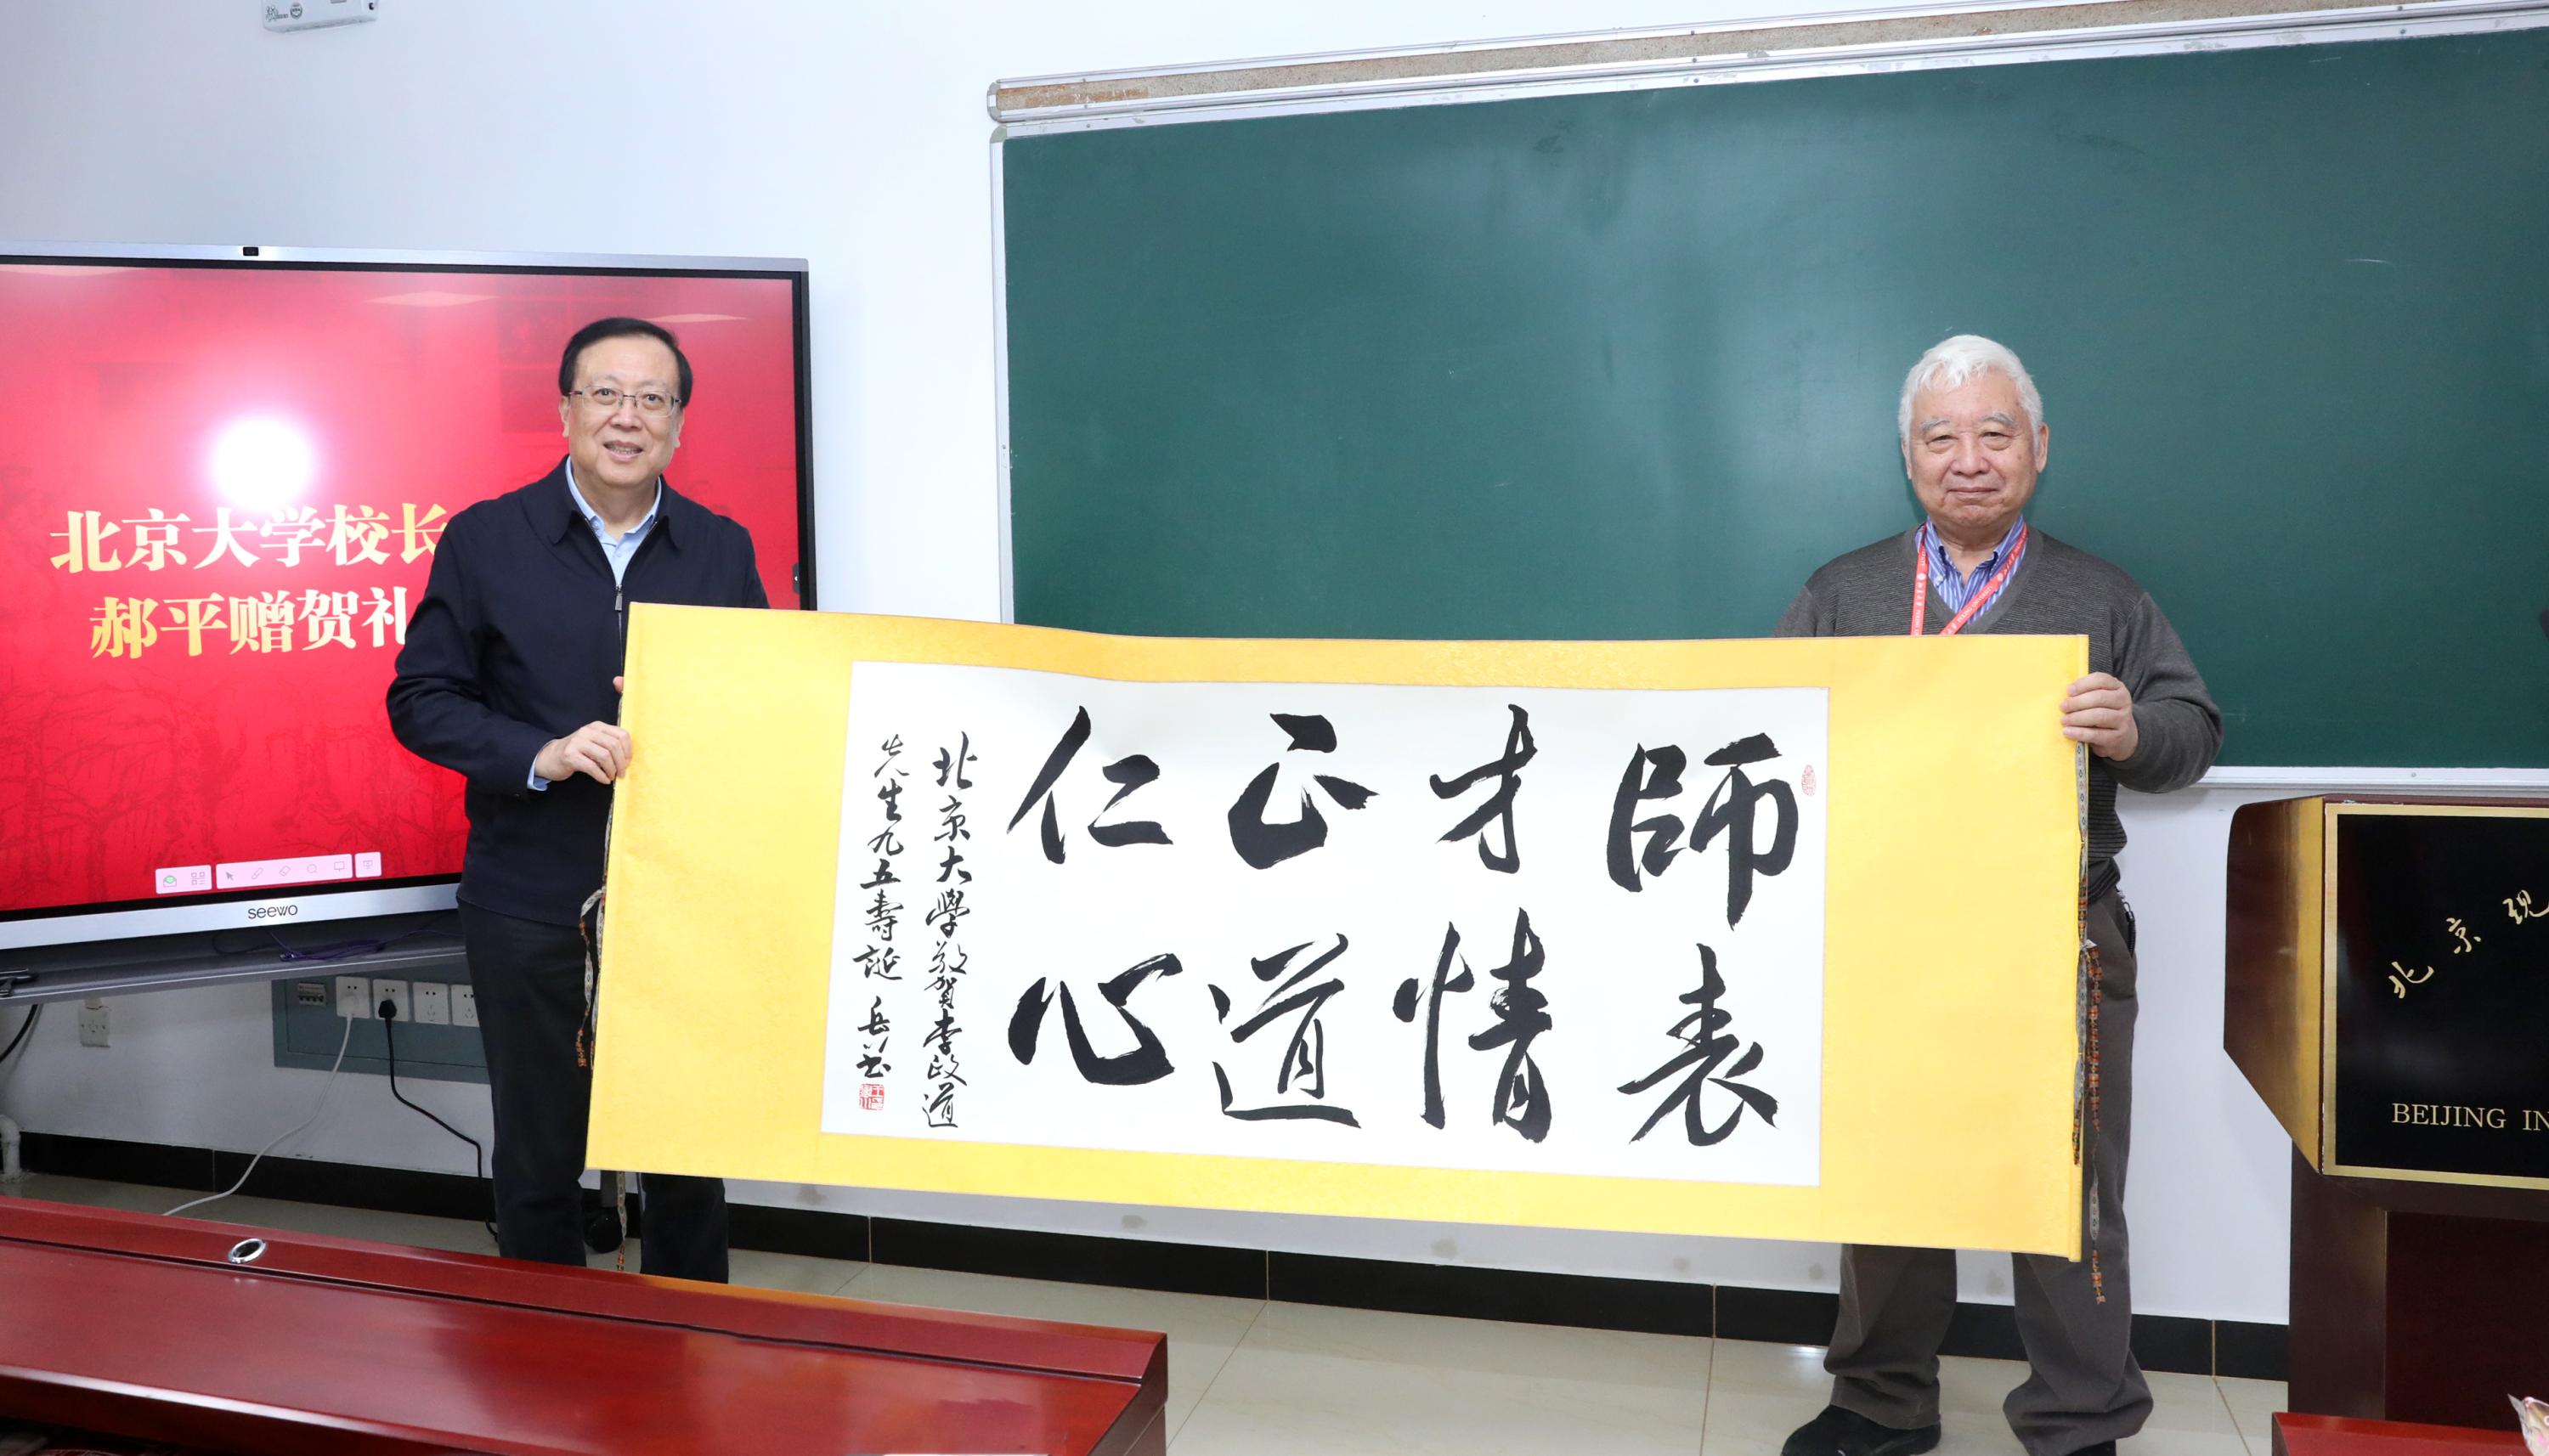 北京大学校长
郝平赠贺礼
seewo
師表
才情
正道
仁心
北京大學敬賀李政道
先生九五壽誕 岳川书
北京现
BEIJING IN